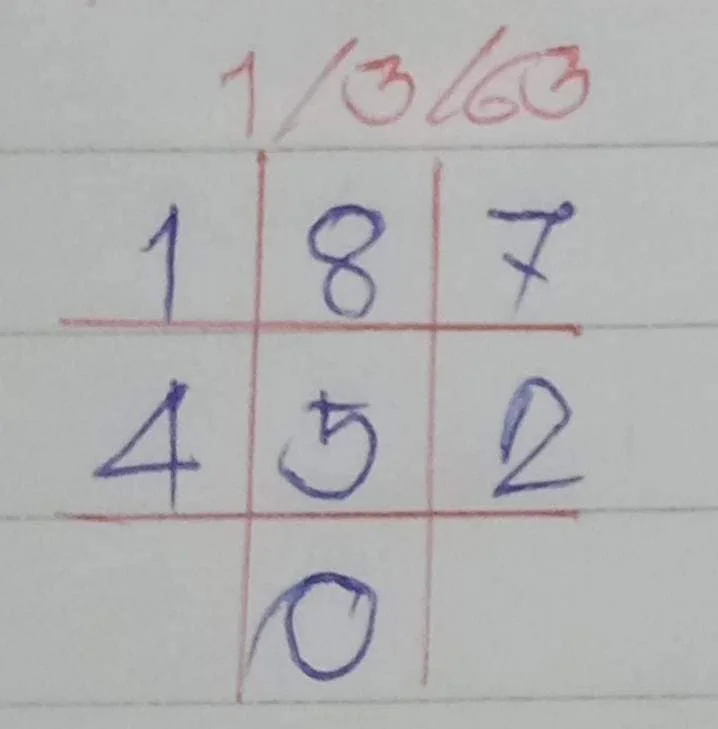 1/3/63
1 8 7
4 5 2
0